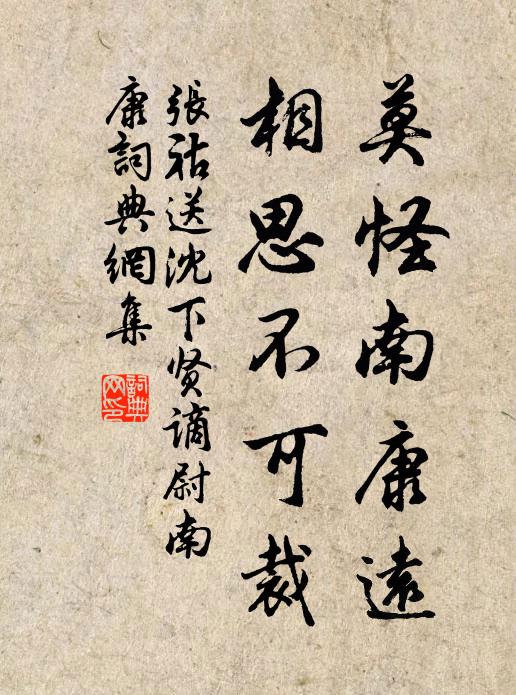 莫怪南康遠
相思不可裁
張祜送沈下贤謫尉南
康詞典網集
詞典
网印